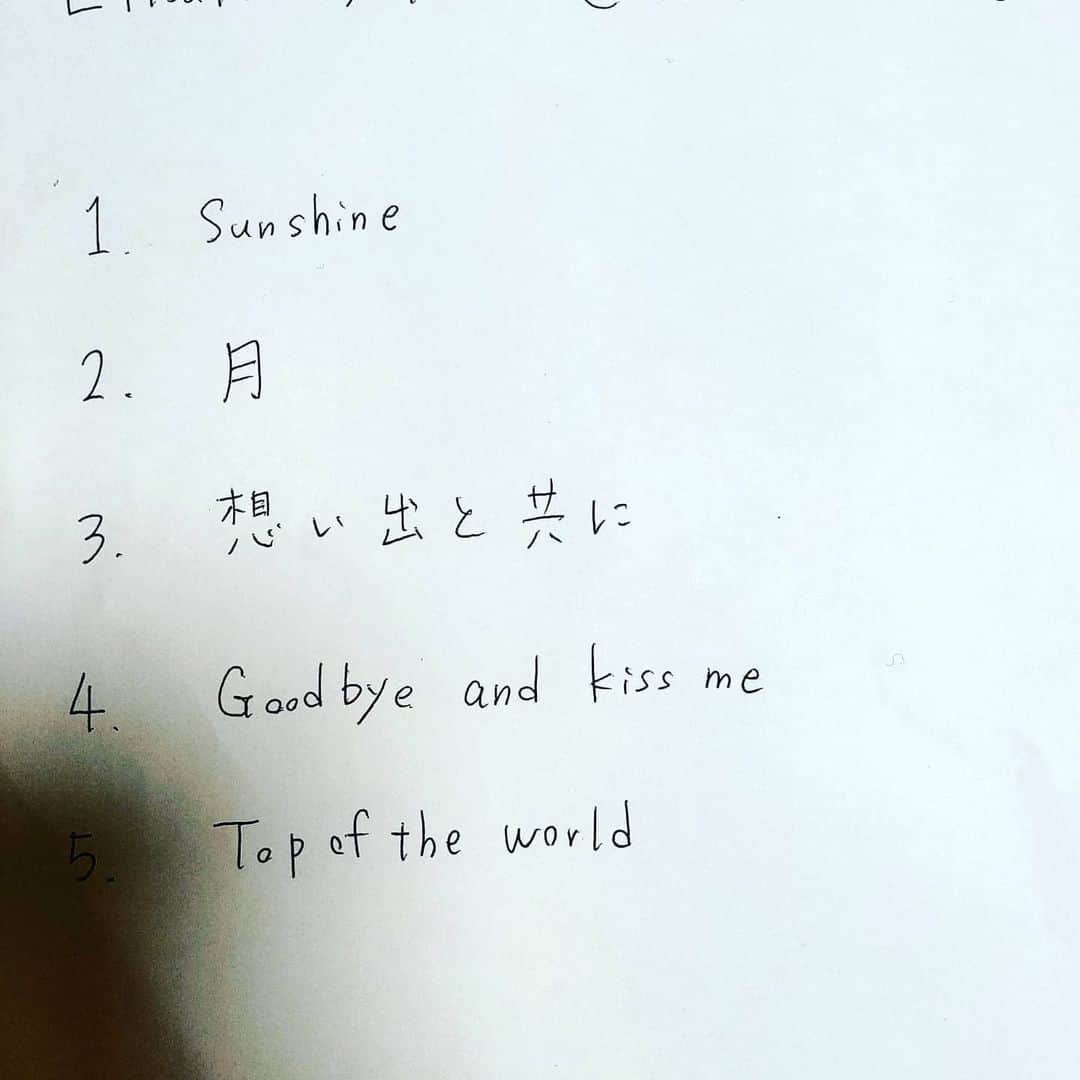 1. Sunshine
2. 月
3. 想い出と共に
4. Goodbye and kiss me
5. Top of the world